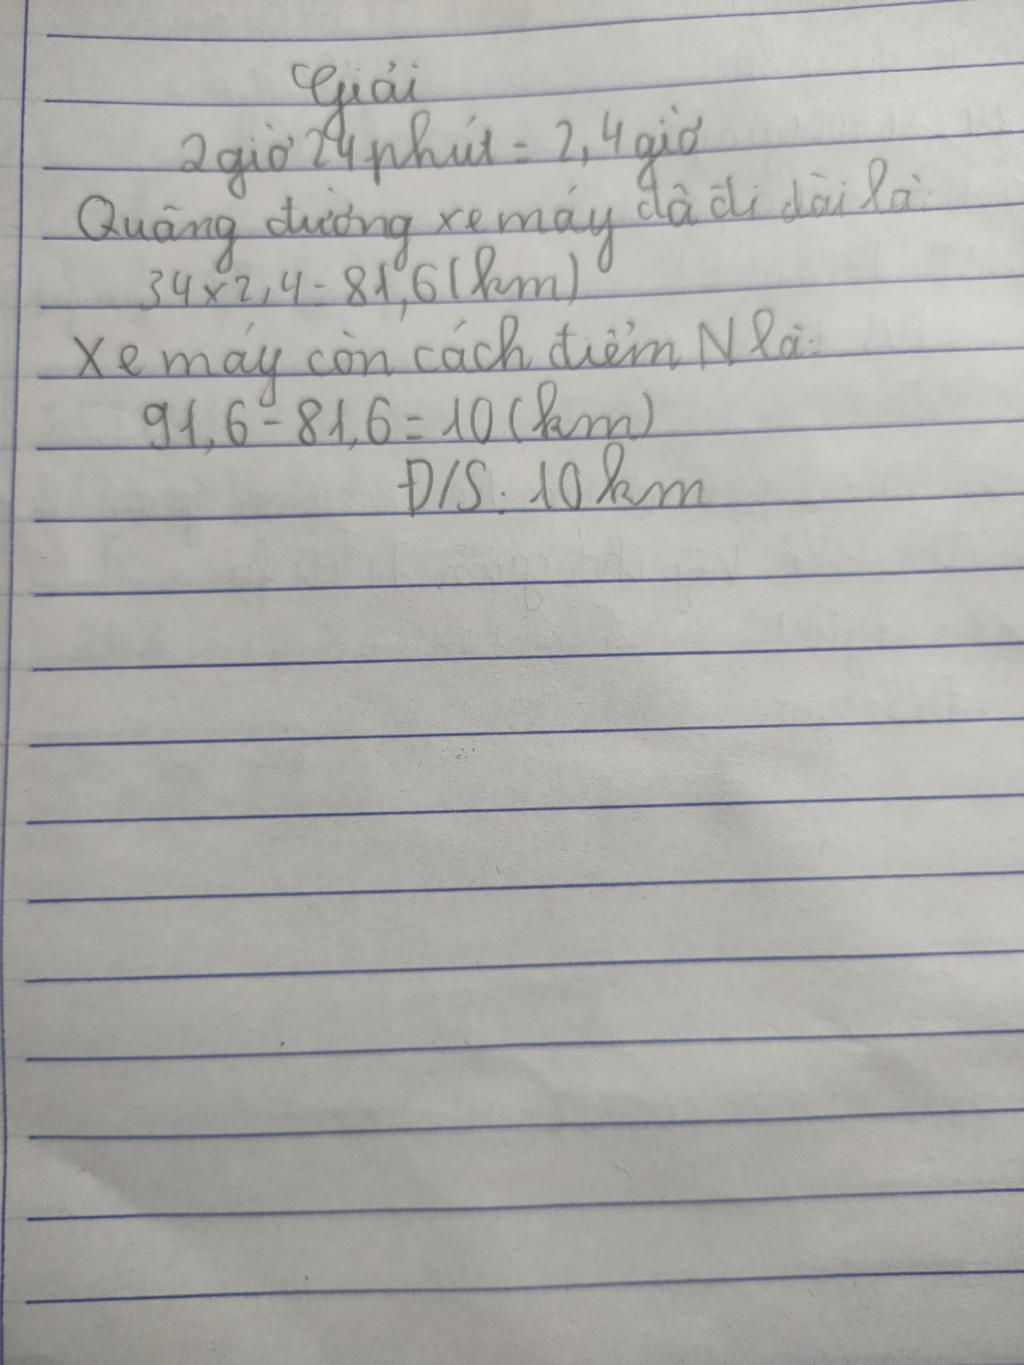 Giải
2 giờ 24 phút = 2,4 giờ
Quãng đường xe máy đã đi dài là:
34 x 2,4 = 81,6 (km)
Xe máy còn cách điểm N là:
91,6 - 81,6 = 10 (km)
Đ/S: 10 km